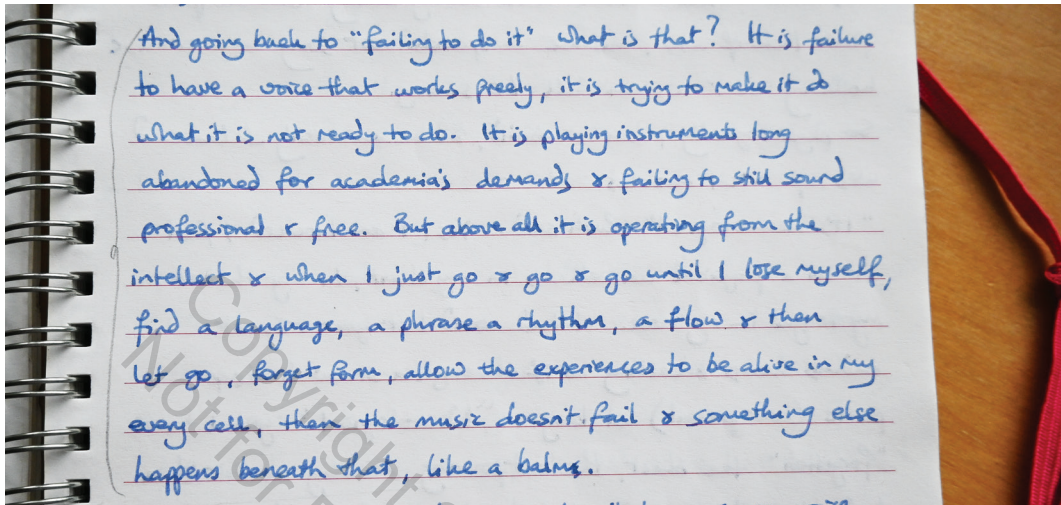 And going back to "failing to do it" what is that? It is failure
to have a voice that works freely, it is trying to make it do
what it is not ready to do. It is playing instruments long
abandoned for academia's demands & failing to still sound
professional & free. But above all it is operating from the
intellect & when I just go & go & go until I lose myself,
find a language, a phrase a rhythm, a flow & then
let go, forget form, allow the experiences to be alive in my
every cell, then the music doesn't fail & something else
happens beneath that, like a balm.
Copyright
Not for